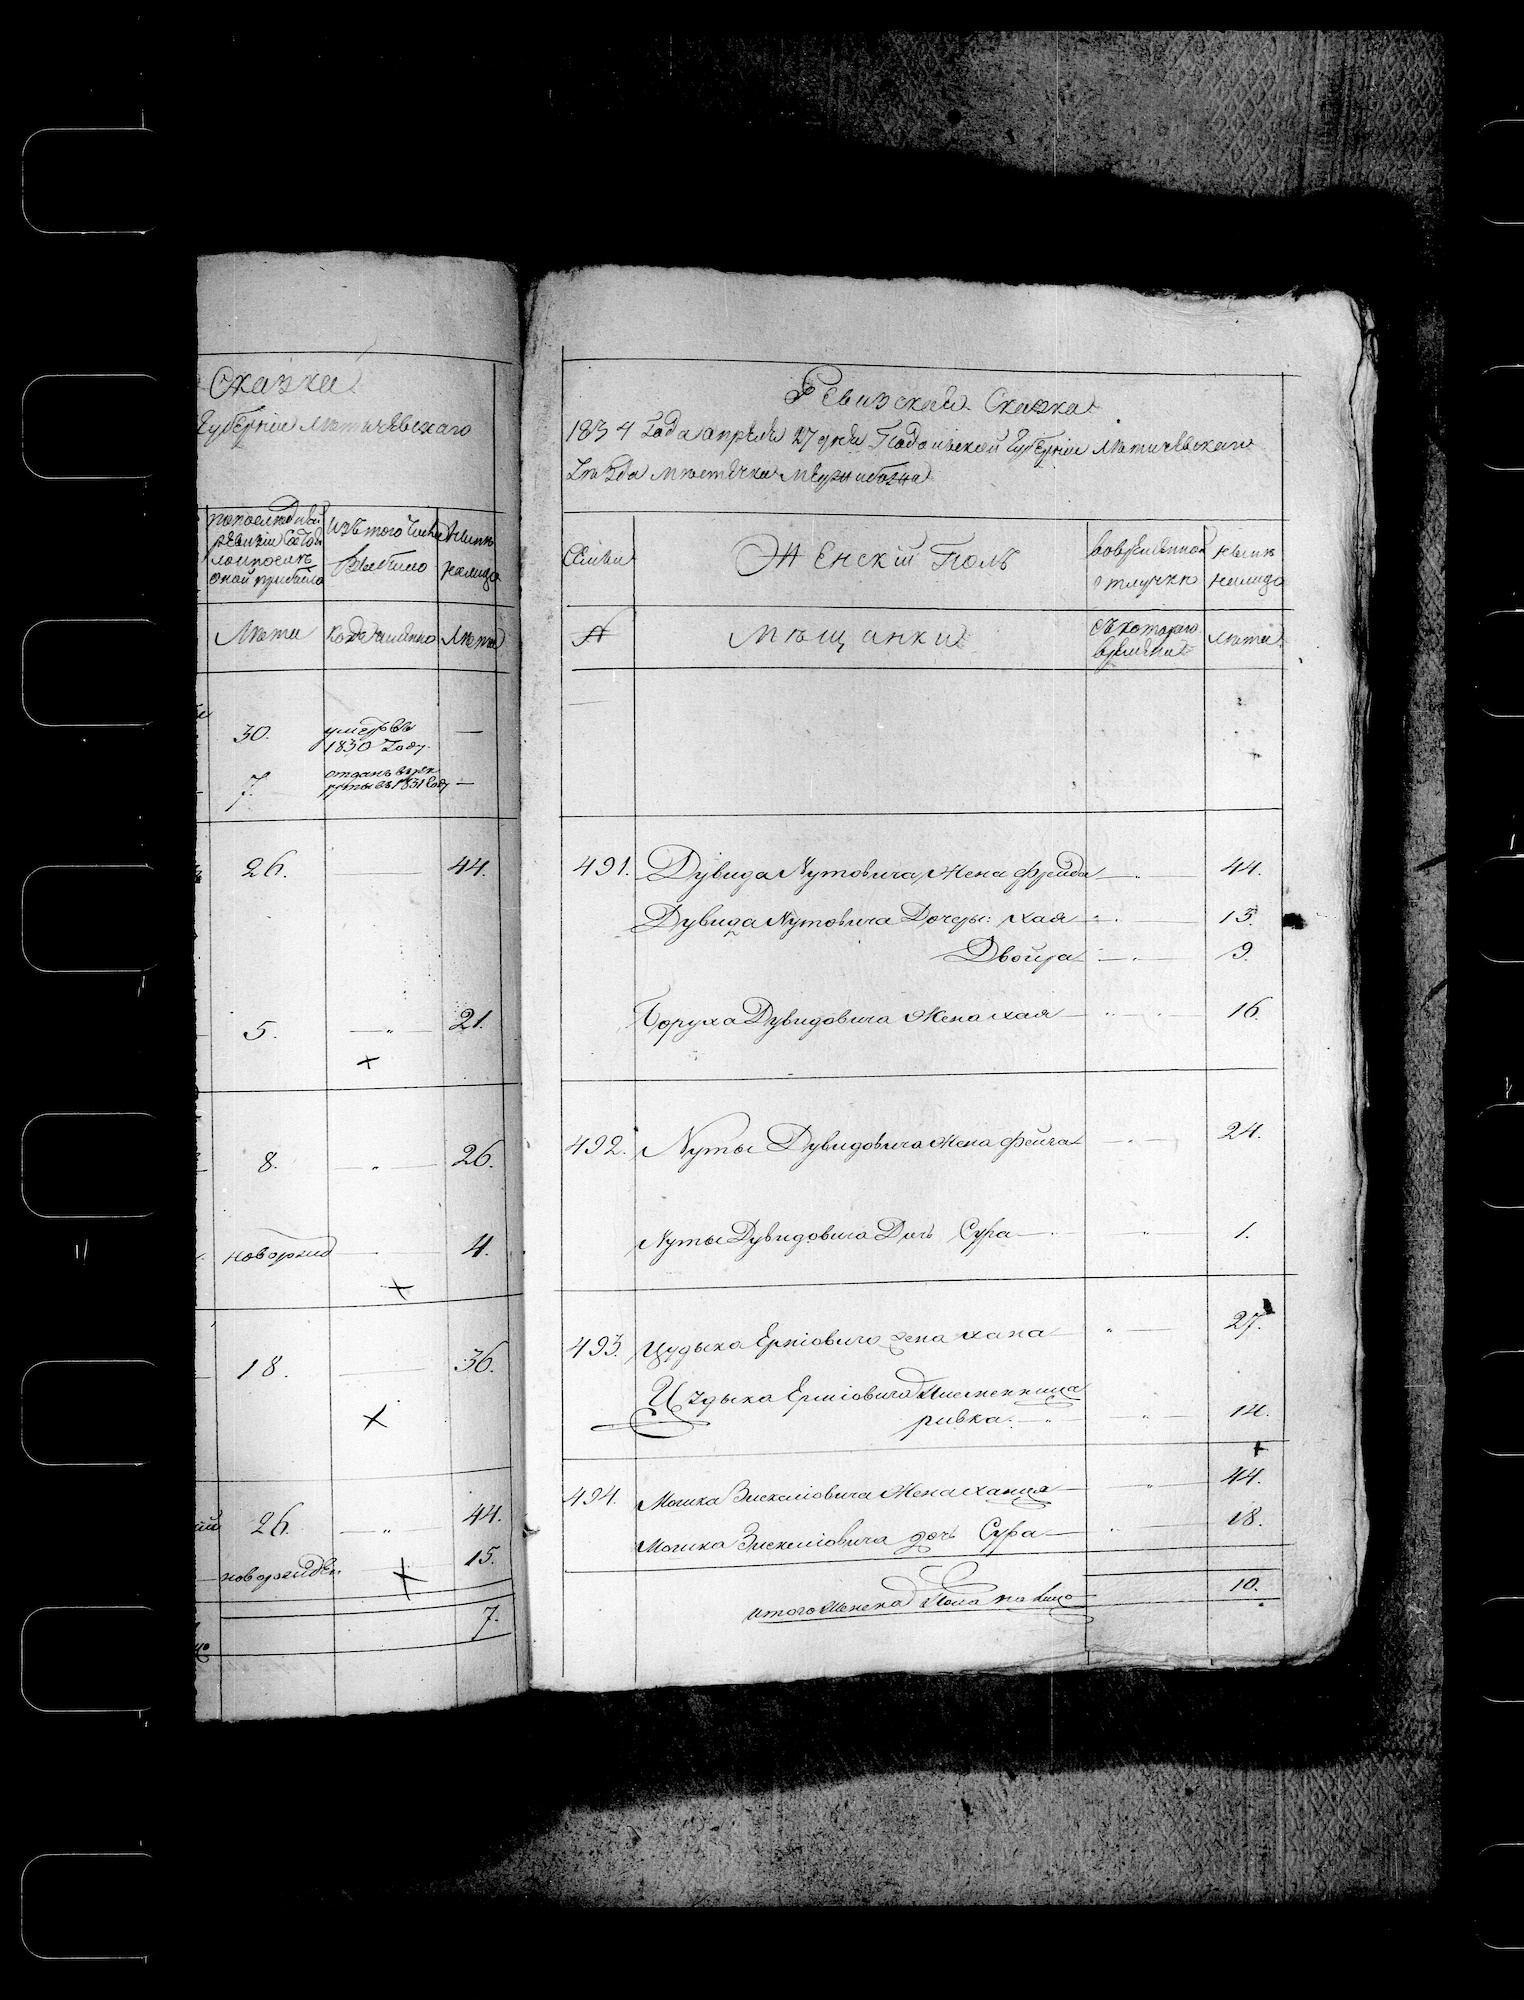 Сказка
Губерніи Летичевскаго
по последней
ревизіи состоя
ло и после
оной прибыло
изъ того числа
выбыло
ныне
налицо
Лета
когда именно
Лета
30.
умеръ въ
1830 Году
—
7.
отданъ въ рек
руты въ 1831 Году
—
26.
44.
5.
21.
8.
26.
новорожд
4.
18.
36.
26.
44.
новорожден
15.
7.
Ревизская Сказка
1834 Года апреля 27 дня Подольской Губерніи Летичевскаго
Уезда местечка Межибожа
Семьи
Женскій Полъ
во временной
отлучке
ныне
налицо
№
Мещанки
съ котораго
времени
Лета
491. Дувида Нутовича Жена Фрейда 44.
Дувида Нутовича Дочеры: Хая 13.
Двойра 9.
Боруха Дувидовича Жена Хая 16.
492. Нуты Дувидовича Жена Фейга 24.
Нуты Дувидовича Дочь Сура 1.
493. Цудыка Ерміовича жена Хана 27.
Цудыка Ерміовича Племенница
ривка 14.
494. Мошка Зисехиовича Жена Ханця 44.
Мошка Зисехиовича дочь Сура 18.
итого Женска Пола на лицо 10.